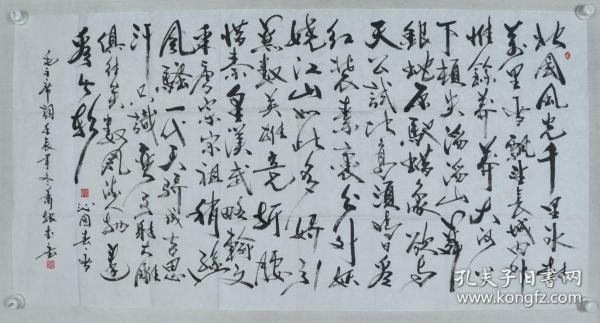 北國風光千里冰封
萬里雪飄望長城內外
惟餘莽莽大河上
下頓失滔滔山舞
銀蛇原馳蠟象欲與
天公試比高須晴日看
紅裝素裹分外妖
嬈江山如此多嬌引
無數英雄競折腰
惜秦皇漢武略輸文
采唐宗宋祖稍遜
風騷一代天驕成吉思
汗只識彎弓射大雕
俱往矣數風流人物還
看今朝
沁園春雪
毛主席詞壬辰年冬
孔夫子旧书网
www.kongfz.com